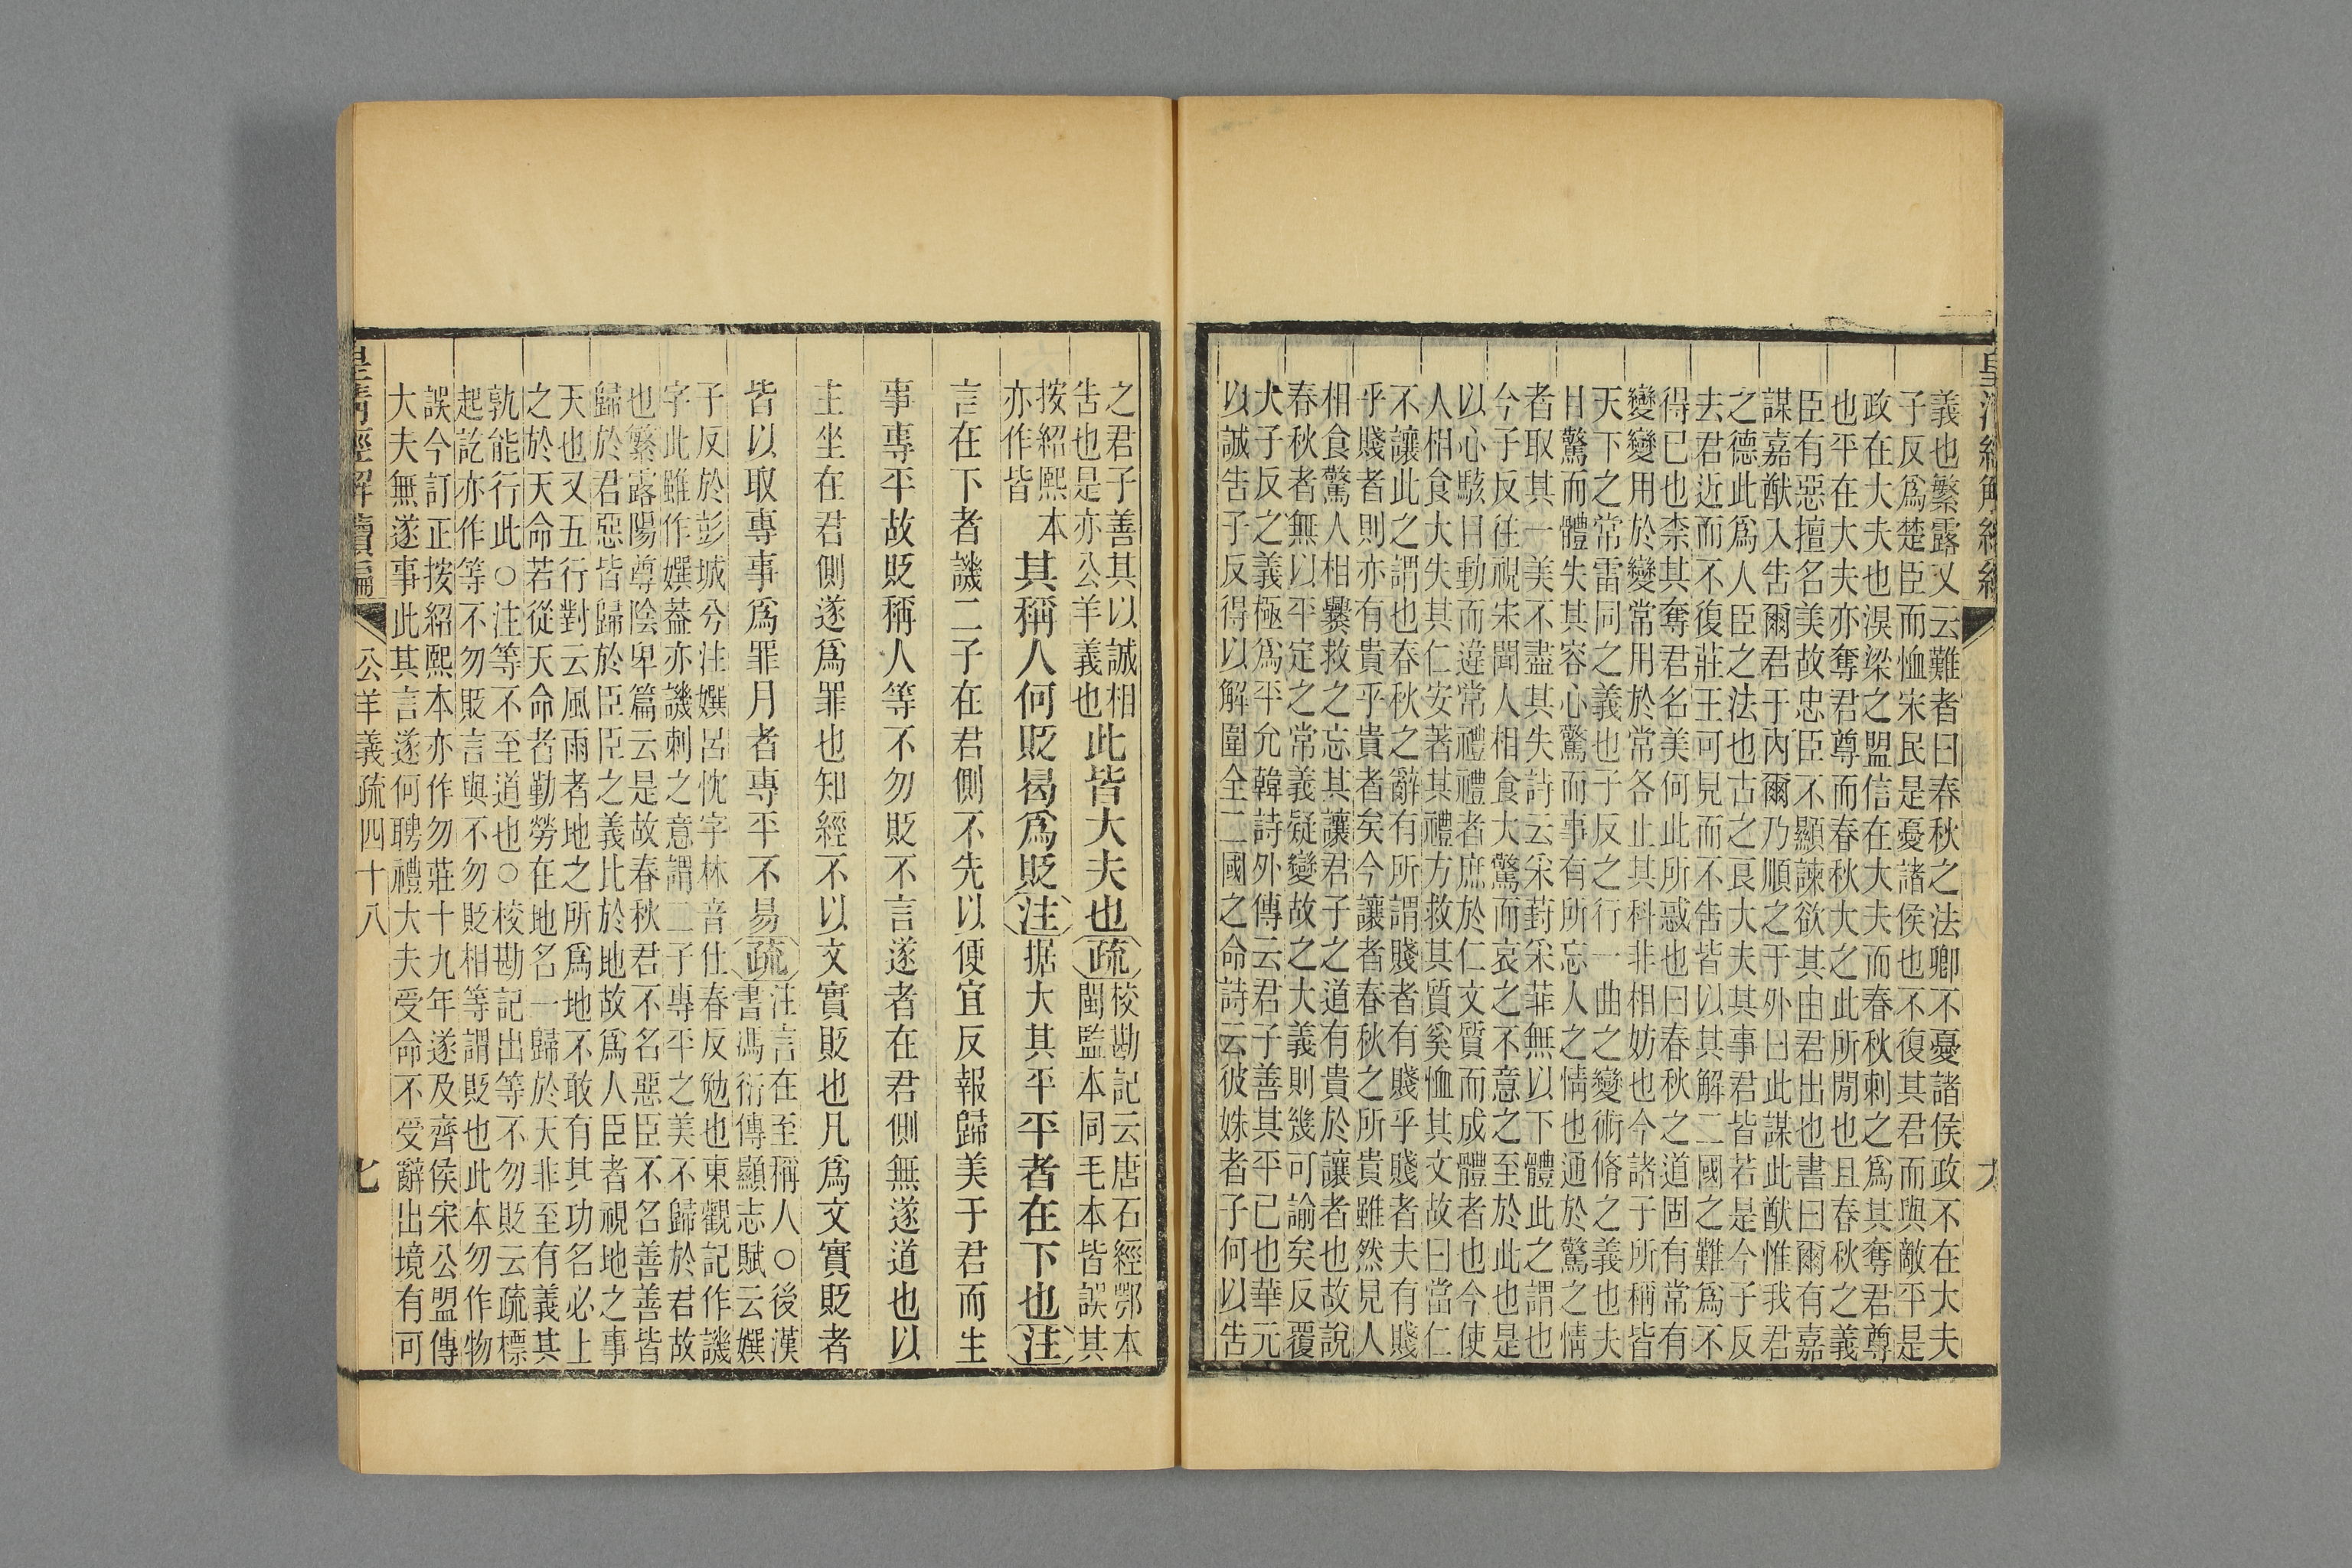 皇清經解續編
義也繁露又云難者曰春秋之法卿不憂諸侯政不在大夫
子反爲楚臣而恤宋民是憂諸侯也不復其君而與敵平是
政在大夫也溴梁之盟信在大夫而春秋刺之爲其奪君尊
也平在大夫亦奪君尊而春秋大之此所閒也且春秋之義
臣有惡擅名美故忠臣不顯諫欲其由君出也書曰爾有嘉
謀嘉猷入告爾君于內爾乃順之于外曰此謀此猷惟我君
之德此爲人臣之法也古之良大夫其事君皆若是今子反
去君近而不復莊王可見而不告皆以其解二國之難爲不
得已也柰其奪君名美何此所惑也曰春秋之道固有常有
變變用於變常用於常各止其科非相妨也今諸子所稱皆
天下之常雷同之義也子反之行一曲之變術脩之義也夫
目驚而體失其容心驚而事有所忘人之情也通於驚之情
者取其一美不盡其失詩云采葑采菲無以下體此之謂也
今子反往視宋聞人相食大驚而哀之不意之至於此也是
以心駭目動而違常禮禮者庶於仁文質而成體者也今使
人相食大失其仁安著其禮方救其質奚恤其文故曰當仁
不讓此之謂也春秋之辭有所謂賤者有賤乎賤者夫有賤
乎賤者則亦有貴乎貴者矣今讓者春秋之所貴雖然見人
相食驚人相爨救之忘其讓君子之道有貴於讓者也故說
春秋者無以平定之常義疑變故之大義則幾可諭矣反覆
犬子反之義極爲平允韓詩外傳云君子善其平已也華元
以誠告子反得以解圍全二國之命詩云彼姝者子何以告
之君子善其以誠相
告也是亦公羊義也
此皆大夫也疏
校勘記云唐石經鄂本
閩監本同毛本皆誤其
按紹熙本
亦作皆
其稱人何貶曷爲貶注据大其平平者在下也注
言在下者譏二子在君側不先以便宜反報歸美于君而生
事專平故貶稱人等不勿貶不言遂者在君側無遂道也以
主坐在君側遂爲罪也知經不以文實貶也凡爲文實貶者
皆以取專事爲罪月者專平不易疏
注言在至稱人○後漢
書馮衍傳顯志賦云媟
子反於彭城兮注媟呂忱字林音仕春反勉也東觀記作譏
字此雖作媟蓋亦譏刺之意謂二子專平之美不歸於君故
也繁露陽尊陰卑篇云是故春秋君不名惡臣不名善善皆
歸於君惡皆歸於臣臣之義比於地故爲人臣者視地之事
天也又五行對云風雨者地之所爲地不敢有其功名必上
之於天命若從天命者勤勞在地名一歸於天非至有義其
孰能行此○注等不至道也○校勘記出等不勿貶云疏標
起訖亦作等不勿貶言與不勿貶相等謂貶也此本勿作物
誤今訂正按紹熙本亦作勿莊十九年遂及齊侯宋公盟傳
大夫無遂事此其言遂何聘禮大夫受命不受辭出境有可
皇淸經解續編
公羊義疏四十八
七